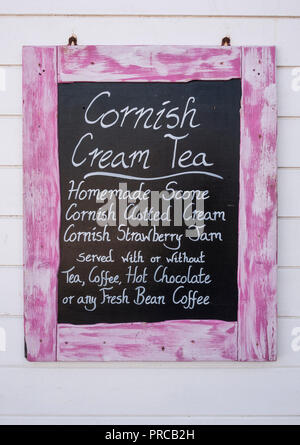 Cornish
Cream Tea
Homemade Scone
Cornish Clotted Cream
Cornish Strawberry Jam
served with or without
Tea, Coffee, Hot Chocolate
or any Fresh Bean Coffee
alamy
Image ID: PRCB2H
www.alamy.com